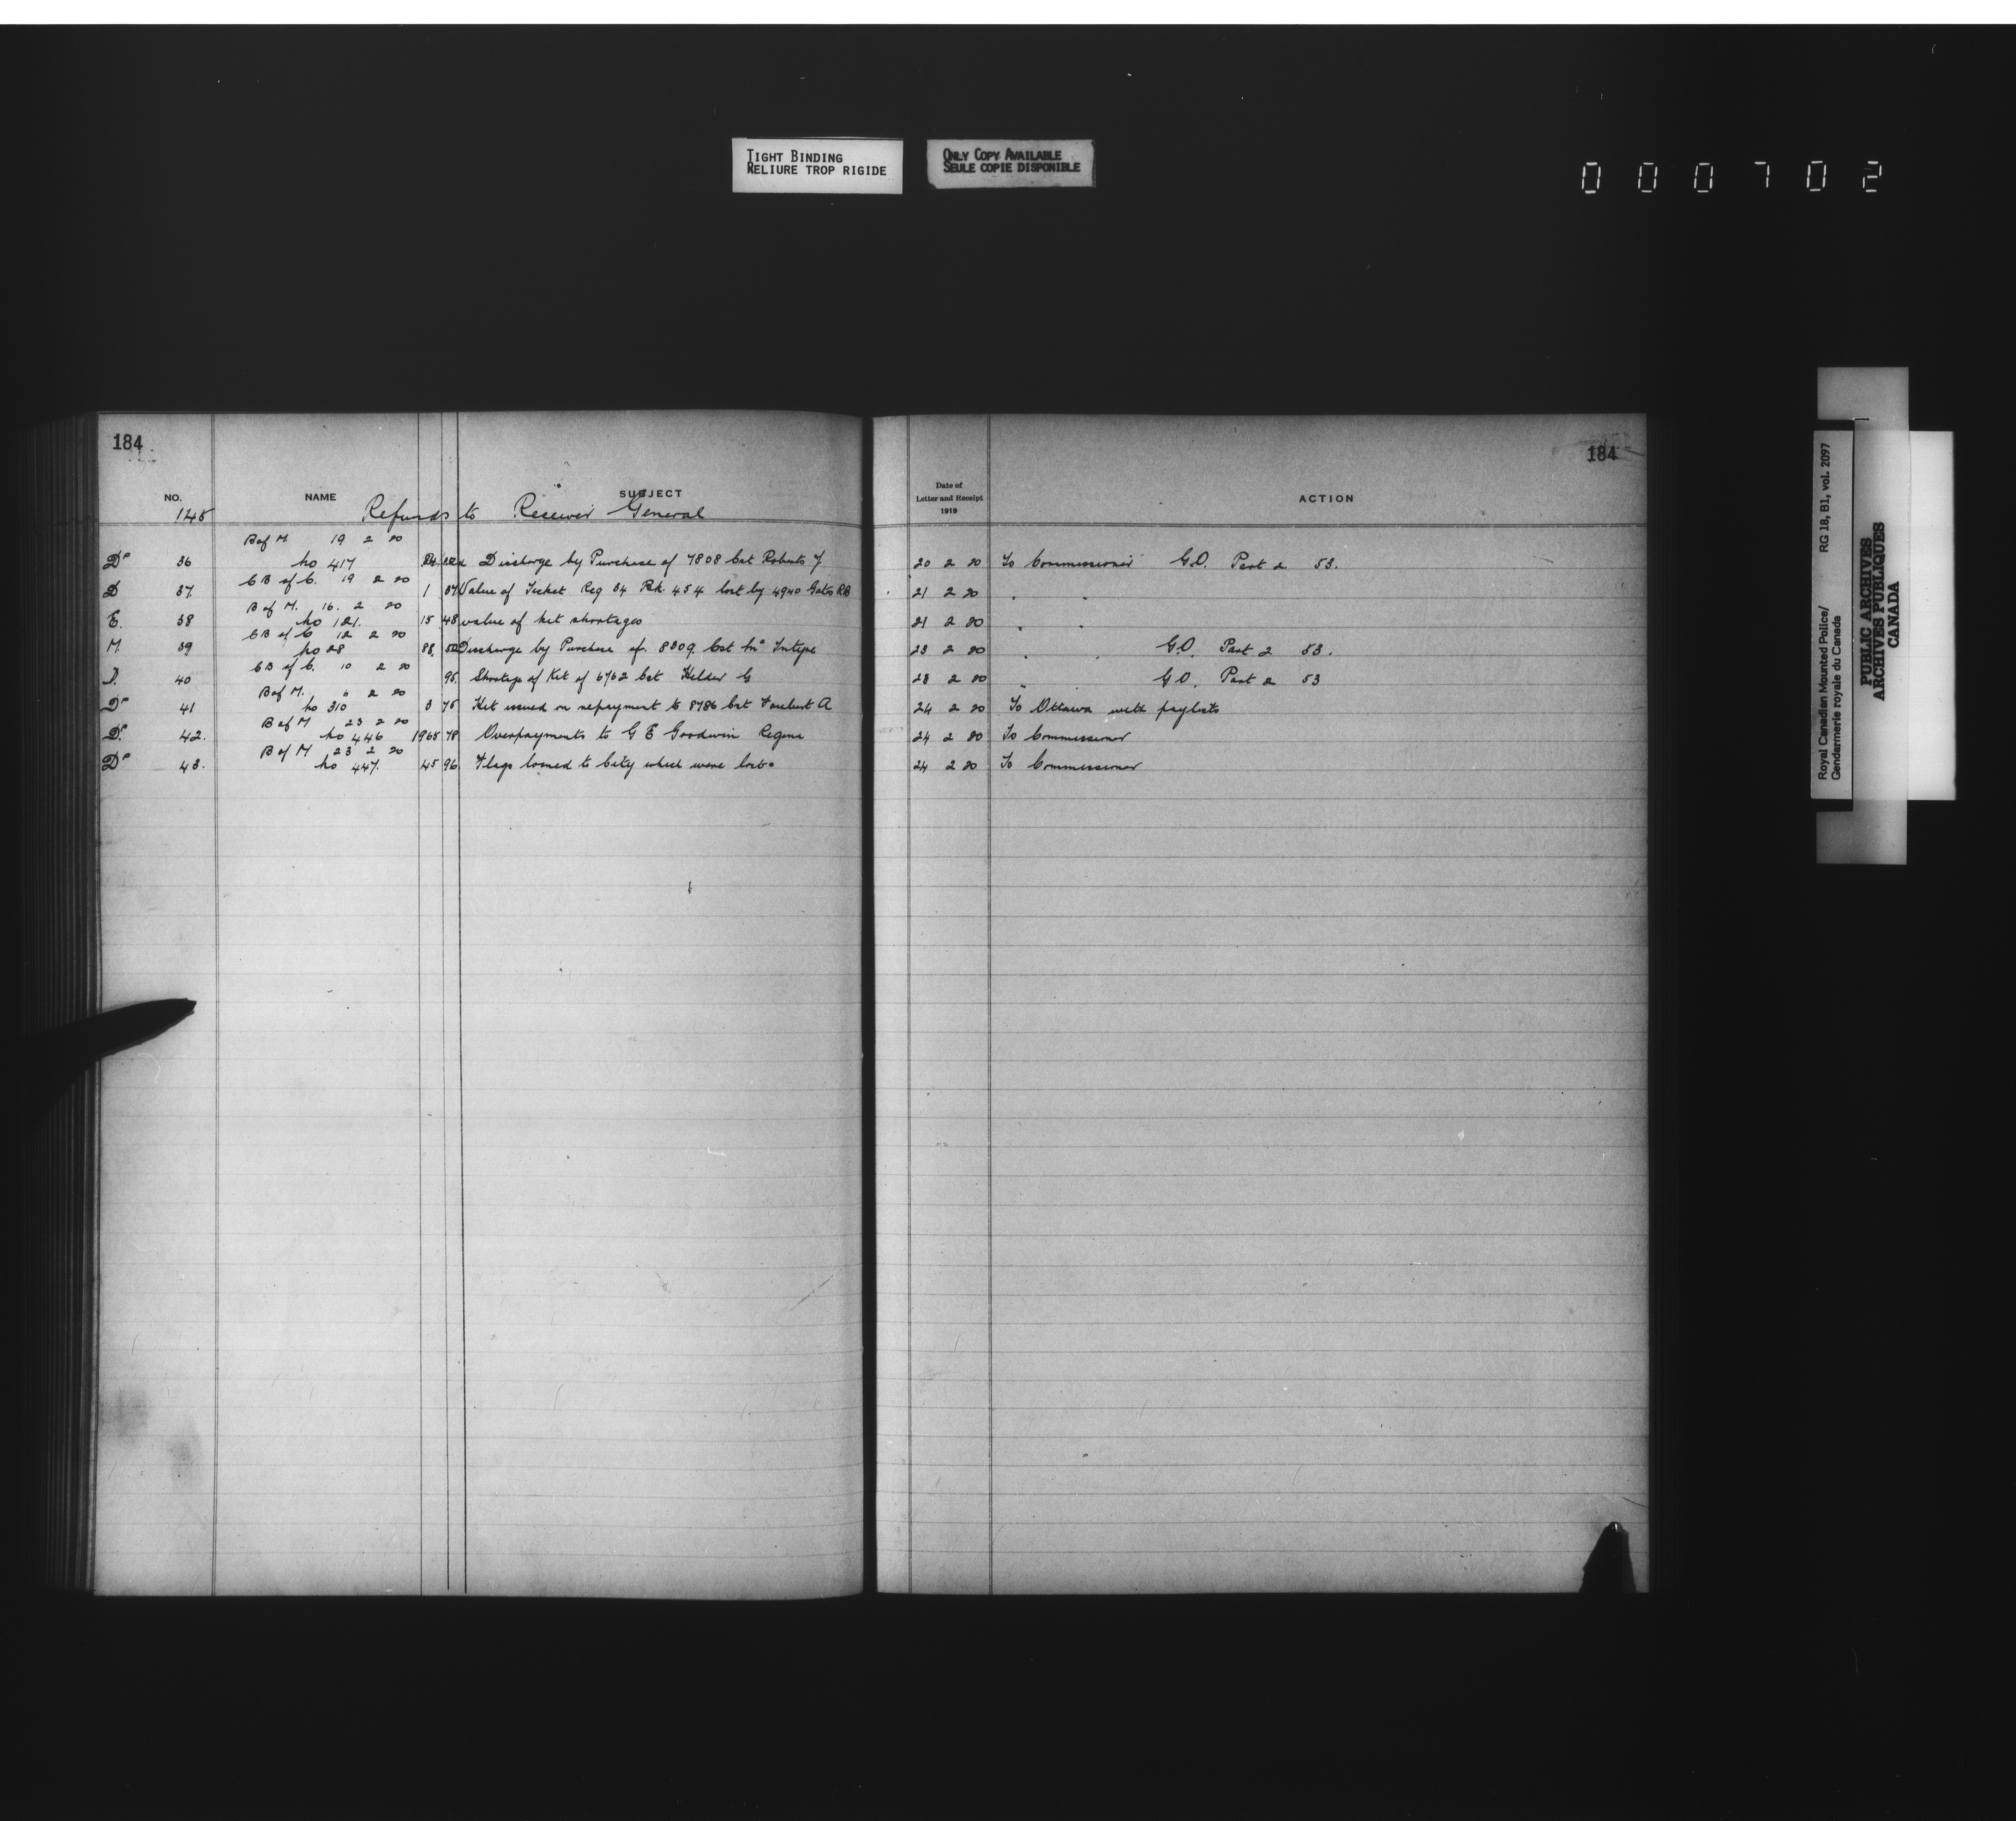 TIGHT BINDING
RELIURE TROP RIGIDE
ONLY COPY AVAILABLE
SEULE COPIE DISPONIBLE
000702
184
NO. NAME SUBJECT
145 Refunds to Receiver General
B of M. 19 2 20
Do 36 No 417 Discharge by Purchase of 7808 Cst Roberts J
C B of C. 19 2 20
D 37 1 37 Value of Ticket Reg 34 Bk. 454 lost by 4940 Gates RB
B of M. 16. 2 20
E. 38 No 121. 15 48 value of kit shortages
C B of C 12 2 20
M. 39 No 28 Discharge by Purchase of. 8309. Cst
C B of C. 10 2 20
40 95. Shortage of Kit of 6762 Cst Helder G
B of M. 6 2 20
Do 41 No 310 3 75 Kit issued on repayment to 8786 Cst A
B of M 23 2 20
Do. 42. No 446 1965 78 Overpayments to G E Goodwin Regina
B of M 23 2 20
Do 43. No 447. 45 96 Flags loaned to City which were lost.
184
Date of
Letter and Receipt
1919
ACTION
20 2 20 To Commissioner G.O. Part 2 53.
21 2 20 " "
21 2 20 " "
23 2 20 " " G.O. Part 2 53.
23 2 20 " " G.O. Part 2 53
24 2 20 To Ottawa with paylists
24 2 20 To Commissioner
24 2 20 To Commissioner
Royal Canadian Mounted Police/ RG 18, B1, vol. 2097
Gendarmerie royale du Canada
PUBLIC ARCHIVES
ARCHIVES PUBLIQUES
CANADA